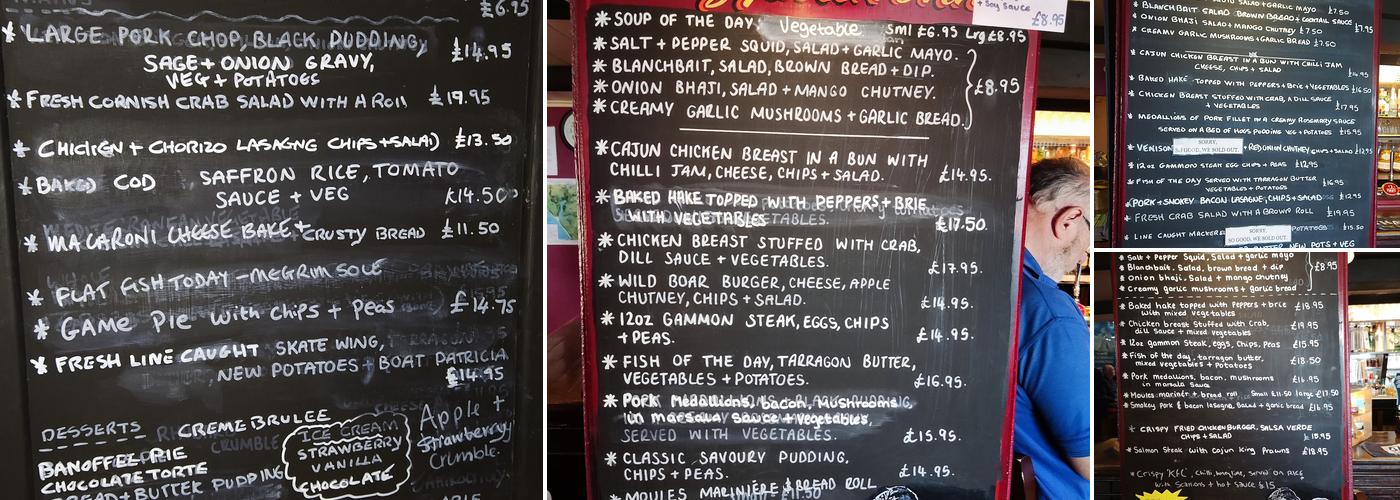 £6.95
* LARGE PORK CHOP, BLACK PUDDING,
SAGE + ONION GRAVY, £14.95
VEG + POTATOES
* FRESH CORNISH CRAB SALAD WITH A Roll £19.95
* CHICKEN + CHORIZO LASAGNG CHIPS + SALAD £13.50
* BAKED COD SAFFRON RICE, TOMATO
SAUCE + VEG £14.50
* MACARONI CHEESE BAKE + CRUSTY BREAD £11.50
* FLAT FISH TODAY - MEGRIM SOLE
* GAME Pie with chips + Peas £14.75
* FRESH LINE CAUGHT SKATE WING,
NEW POTATOES + BOAT PATRICIA
£14.95
DESSERTS CREME BRULEE
CRUMBLE
BANOFFEE PIE
CHOCOLATE TORTE
BREAD + BUTTER PUDDING
ICE CREAM
STRAWBERRY
VANILLA
CHOCOLATE
Apple +
Strawberry
Crumble
+ Soy Sauce £8.95
* SOUP OF THE DAY: Vegetable Sml £6.95 Lrg £8.95
* SALT + PEPPER SQUID, SALAD + GARLIC MAYO.
* BLANCHBAIT, SALAD, BROWN BREAD + DIP.
* ONION BHAJI, SALAD + MANGO CHUTNEY. £8.95
* CREAMY GARLIC MUSHROOMS + GARLIC BREAD.
* CAJUN CHICKEN BREAST IN A BUN WITH
CHILLI JAM, CHEESE, CHIPS + SALAD. £14.95.
* BAKED HAKE TOPPED WITH PEPPERS + BRIE
WITH VEGETABLES £17.50
* CHICKEN BREAST STUFFED WITH CRAB,
DILL SAUCE + VEGETABLES. £17.95.
* WILD BOAR BURGER, CHEESE, APPLE
CHUTNEY, CHIPS + SALAD. £14.95.
* 12oz GAMMON STEAK, EGGS, CHIPS
+ PEAS. £14.95.
* FISH OF THE DAY, TARRAGON BUTTER,
VEGETABLES + POTATOES. £16.95.
* PORK Medallions, bacon, mushrooms
in marsala Sauce + vegetables,
SERVED WITH VEGETABLES. £15.95.
* CLASSIC SAVOURY PUDDING,
CHIPS + PEAS. £14.95.
* MOULES MARINIÈRE + BREAD ROLL
£17.50
SALAD + GARLIC MAYO £7.50
* BLANCHBAIT SALAD BROWN BREAD + COCKTAIL SAUCE £7.95
* ONION BHAJI SALAD + MANGO CHUTNEY £7.50
* CREAMY GARLIC MUSHROOMS + GARLIC BREAD £7.50
* CAJUN CHICKEN BREAST IN A BUN WITH CHILLI JAM
CHEESE, CHIPS + SALAD £14.95
* BAKED HAKE TOPPED WITH PEPPERS + Brie + VEGETABLES £16.50
* CHICKEN BREAST STUFFED WITH CRAB, A DILL SAUCE
+ VEGETABLES £17.95
* MEDALLIONS OF PORK FILLET IN A CREAMY ROSEMARY SAUCE
SERVED ON A BED OF HOGS PUDDING VEG + POTATOES £15.95
* VENISON SORRY, SO GOOD, WE SOLD OUT. + RED ONION CHUTNEY CHIPS + SALAD £12.95
* 12oz GAMMON STEAK EGG CHIPS + PEAS £12.95
* FISH OF THE DAY SERVED WITH TARRAGON BUTTER
VEGETABLES + POTATOES £16.95
* PORK + SMOKEY BACON LASAGNE, CHIPS + SALAD £12.95
* FRESH CRAB SALAD WITH A BROWN ROLL £19.95
* LINE CAUGHT MACKEREL SORRY, SO GOOD, WE SOLD OUT. POTATOES £15.50
BUTTER NEW POTS + VEG
* Salt + Pepper Squid, Salad + garlic mayo
* Blanchbait, Salad, brown bread + dip
* Onion bhaji, Salad + mango chutney £8.95
* Creamy garlic mushrooms + garlic bread
* Baked hake topped with Peppers + brie £18.95
with mixed vegetables
* Chicken breast Stuffed with Crab, £19.95
dill Sauce + mixed vegetables
* 12oz gammon Steak, eggs, Chips, Peas £15.95
* Fish of the day, tarragon butter, £18.50
mixed vegetables + Potatoes
* Pork medallions, bacon, mushrooms £16.95
in marsala Sauce
* Moules marinièr + bread roll Small £11.50 large £17.50
* Smokey Pork & bacon lasagna, Salad + garlic bread £16.95
* CRISPY FRIED CHICKEN BURGER, SALSA VERDE
CHIPS + SALAD £15.95
* Salmon Steak with Cajun King Prawns £18.95
* Crispy 'KFC', chilli, Served on RICE
with Scallions + hot Sauce £15